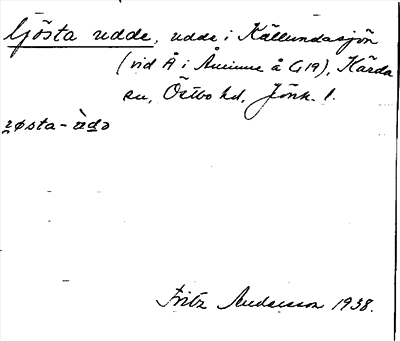 Gösta udde, udde i Källundasjön
(vid Å i Åminne å G19), Kärda
sn, Östbo hd, Jönk. l.
Fritz Andersson 1938.